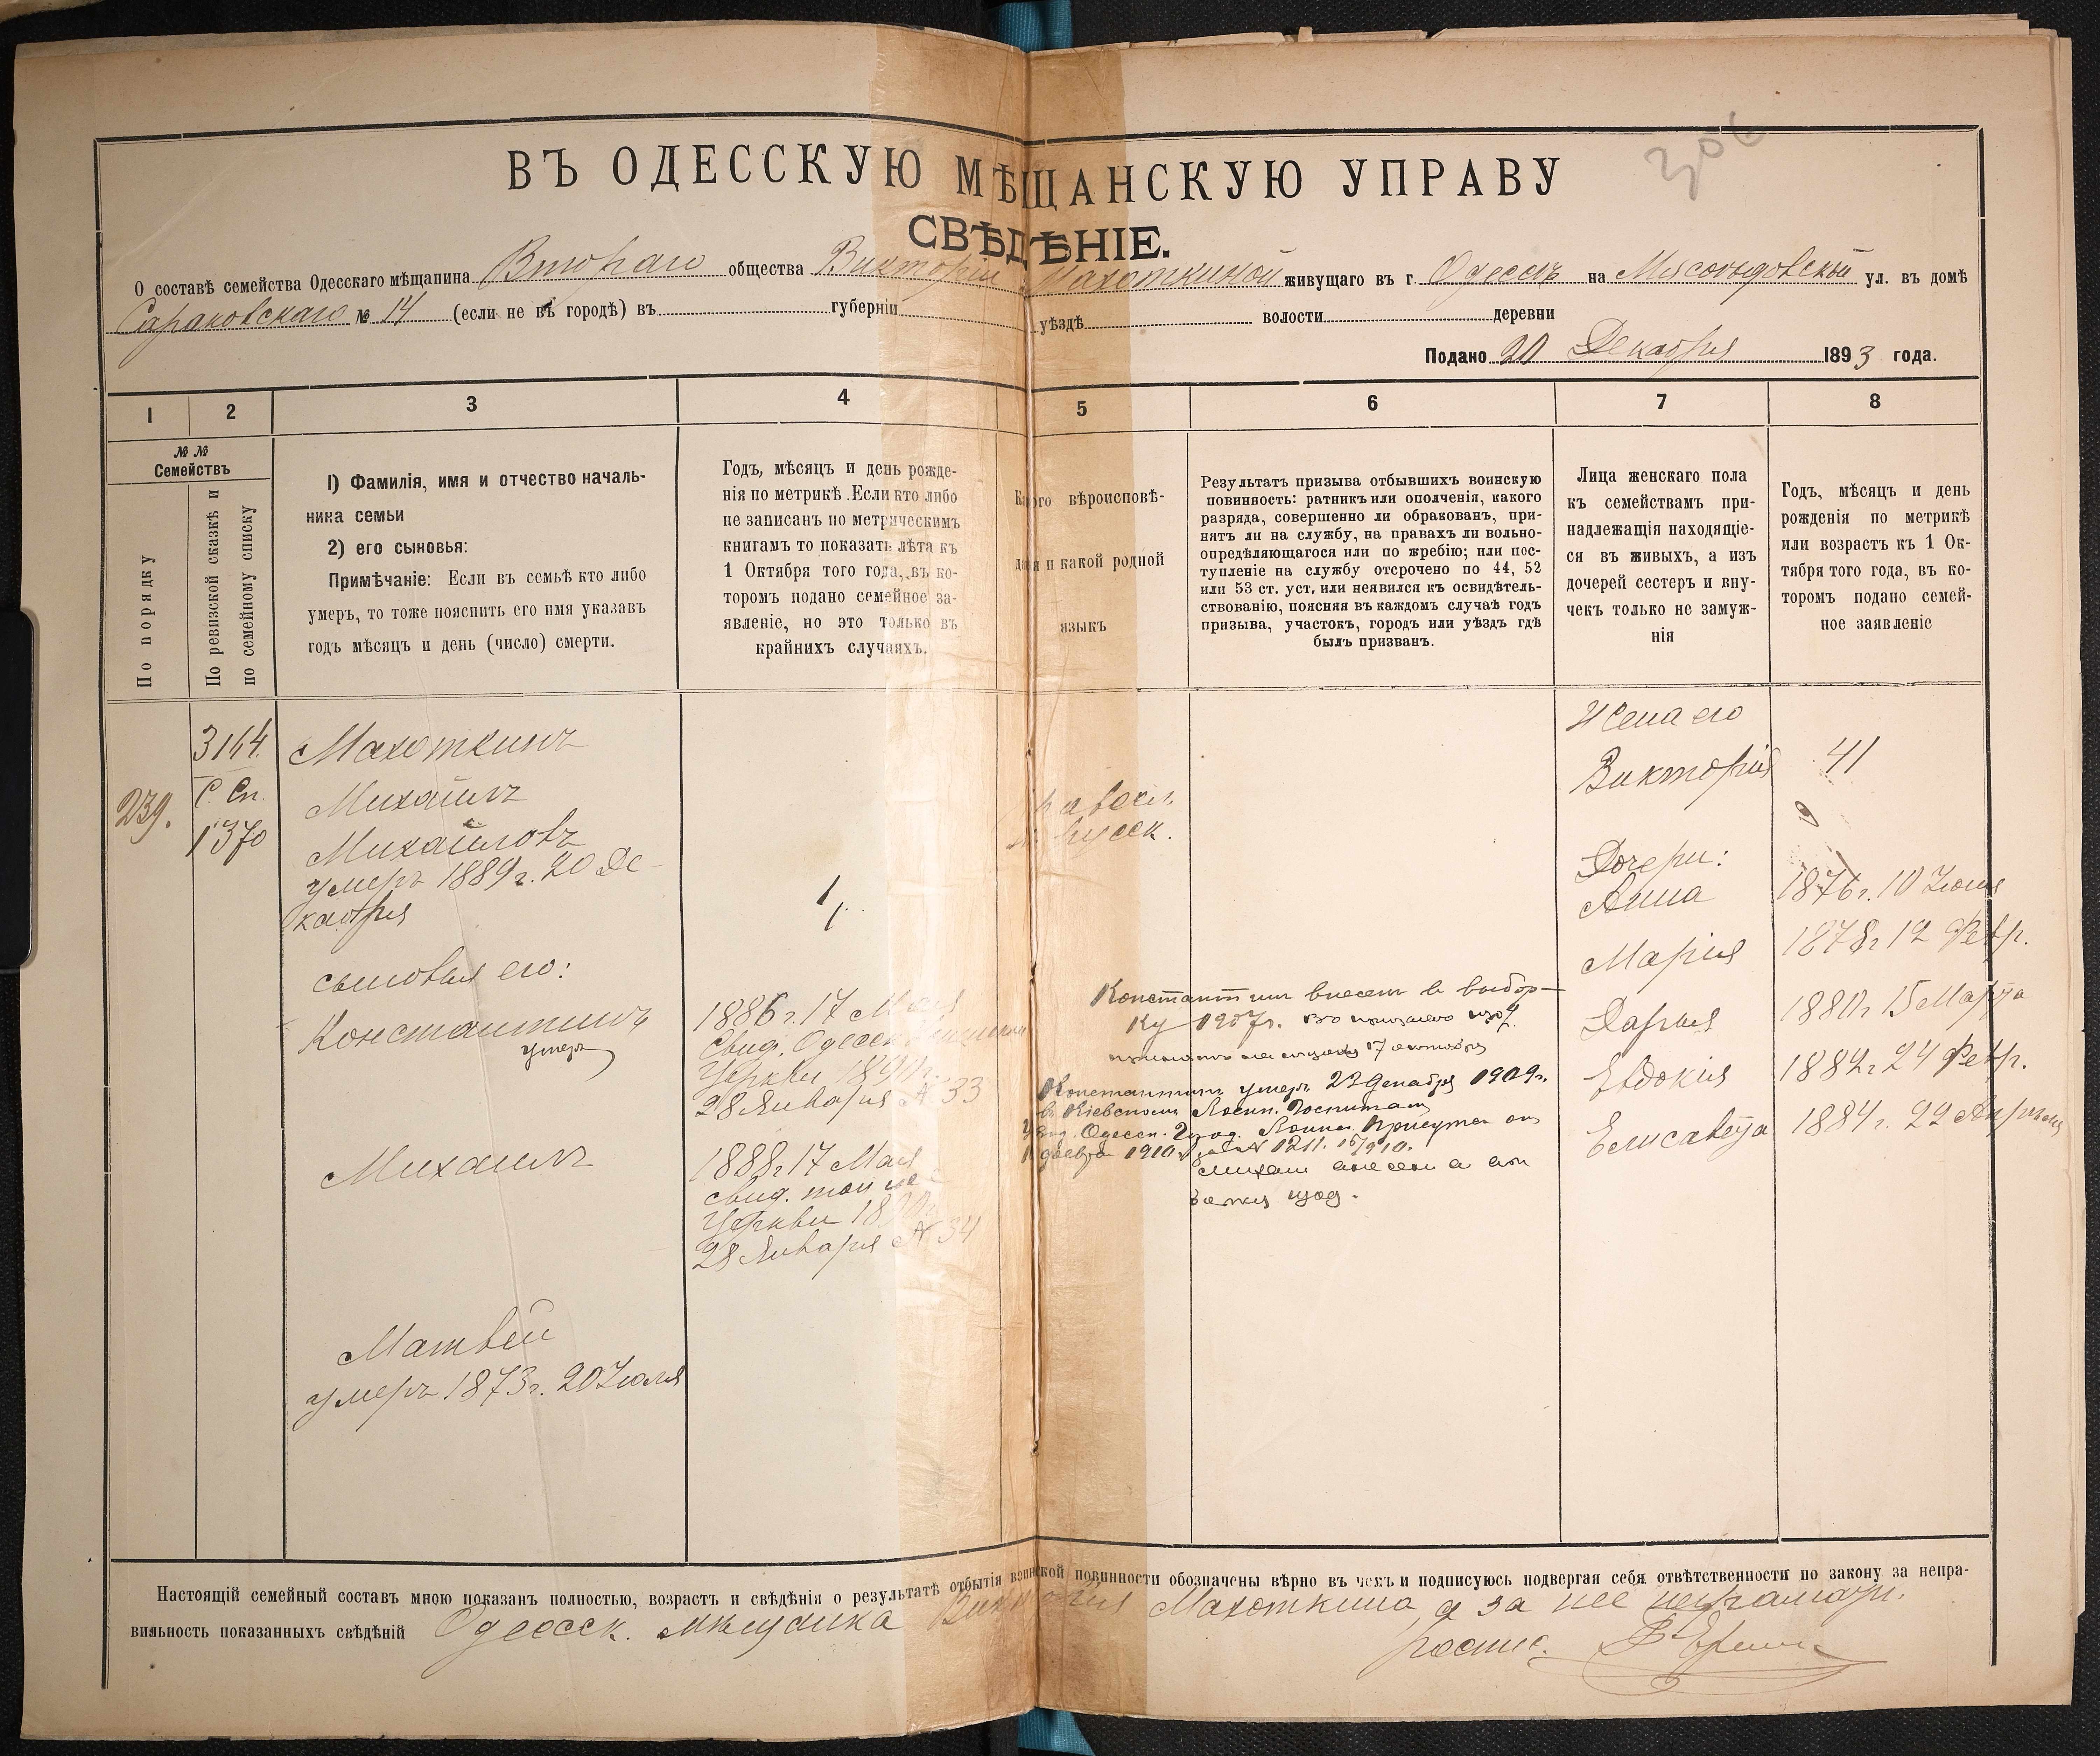 306
ВЪ ОДЕССКУЮ МѢЩАНСКУЮ УПРАВУ
СВѢДѢНІЕ.
О составѣ семейства Одесскаго мѣщанина Втораго общества Викторіи Махоткиной живущаго въ г. Одессѣ на Мясоѣдовской ул. въ домѣ
Сараковскаго № 14 (если не въ городѣ) въ губерніи уѣздѣ волости деревни
Подано 20 Декабря 1893 года.
1 2 3 4 5 6 7 8
№№
Семействъ
По порядку
По ревизской сказкѣ и
по семейному списку
1) Фамилія, имя и отчество началь-
ника семьи
2) его сыновья:
Примѣчаніе: Если въ семьѣ кто либо
умеръ, то тоже пояснить его имя указавъ
годъ мѣсяцъ и день (число) смерти.
Годъ, мѣсяцъ и день рожде-
нія по метрикѣ. Если кто либо
не записанъ по метрическимъ
книгамъ то показать лѣта къ
1 Октября того года, въ ко-
торомъ подано семейное за-
явленіе, но это только въ
крайнихъ случаяхъ.
Какого вѣроисповѣ-
данія и какой родной
языкъ
Результатъ призыва отбывшихъ воинскую
повинность: ратникъ или ополченія, какого
разряда, совершенно ли обракованъ, при-
нятъ ли на службу, на правахъ ли вольно-
опредѣляющагося или по жребію; или пос-
тупленіе на службу отсрочено по 44, 52
или 53 ст. уст, или неявился къ освидѣтель-
ствованію, поясняя въ каждомъ случаѣ годъ
призыва, участокъ, городъ или уѣздъ гдѣ
былъ призванъ.
Лица женскаго пола
къ семействамъ при-
надлежащія находящіе-
ся въ живыхъ, а изъ
дочерей сестеръ и вну-
чекъ только не замуж-
нія
Годъ, мѣсяцъ и день
рожденія по метрикѣ
или возрастъ къ 1 Ок-
тября того года, въ ко-
торомъ подано семей-
ное заявленіе
239.
3164
С. Сп.
1370
Махоткинъ
Михаилъ
Михайловъ
умеръ 1889 г. 20 Де-
кабря
сыновья его:
Константинъ
умеръ
Михаилъ
Матвѣй
умеръ 1873 г. 20 Іюля
1886 г. 17 Мая
Свид. Одесск.
Церкви
28 Января № 33
1888 г. 17 Мая
свид. той же
Церкви
28 Января № 34
правосл.
русск.
Константин внесен в выбор-
ку 1907 г.
17 октября
Константинъ умеръ 23 декабря 1909 г.
въ Кіевскомъ Военн. Госпитал
Одесск. Город. Воинск. Присутст. от
1910 1211.
Михаил
Жена его
Викторія
Дочери:
Анна
Марія
Дарья
Евдокія
Елисавета
41
1876 г. 10 Іюня
1878 г. 12 Февр.
1880 г. 15 Марта
1882 г. 24 Февр.
1884 г. 22 Апрѣля
Настоящій семейный составъ мною показанъ полностью, возрастъ и свѣдѣнія о результатѣ отбытія воинской повинности обозначены вѣрно въ чемъ и подписуюсь подвергая себя отвѣтственности по закону за непра-
вильность показанныхъ свѣдѣній Одесск. мѣщанка Викторія Махоткина, а за нее неграмотн.
роспис.